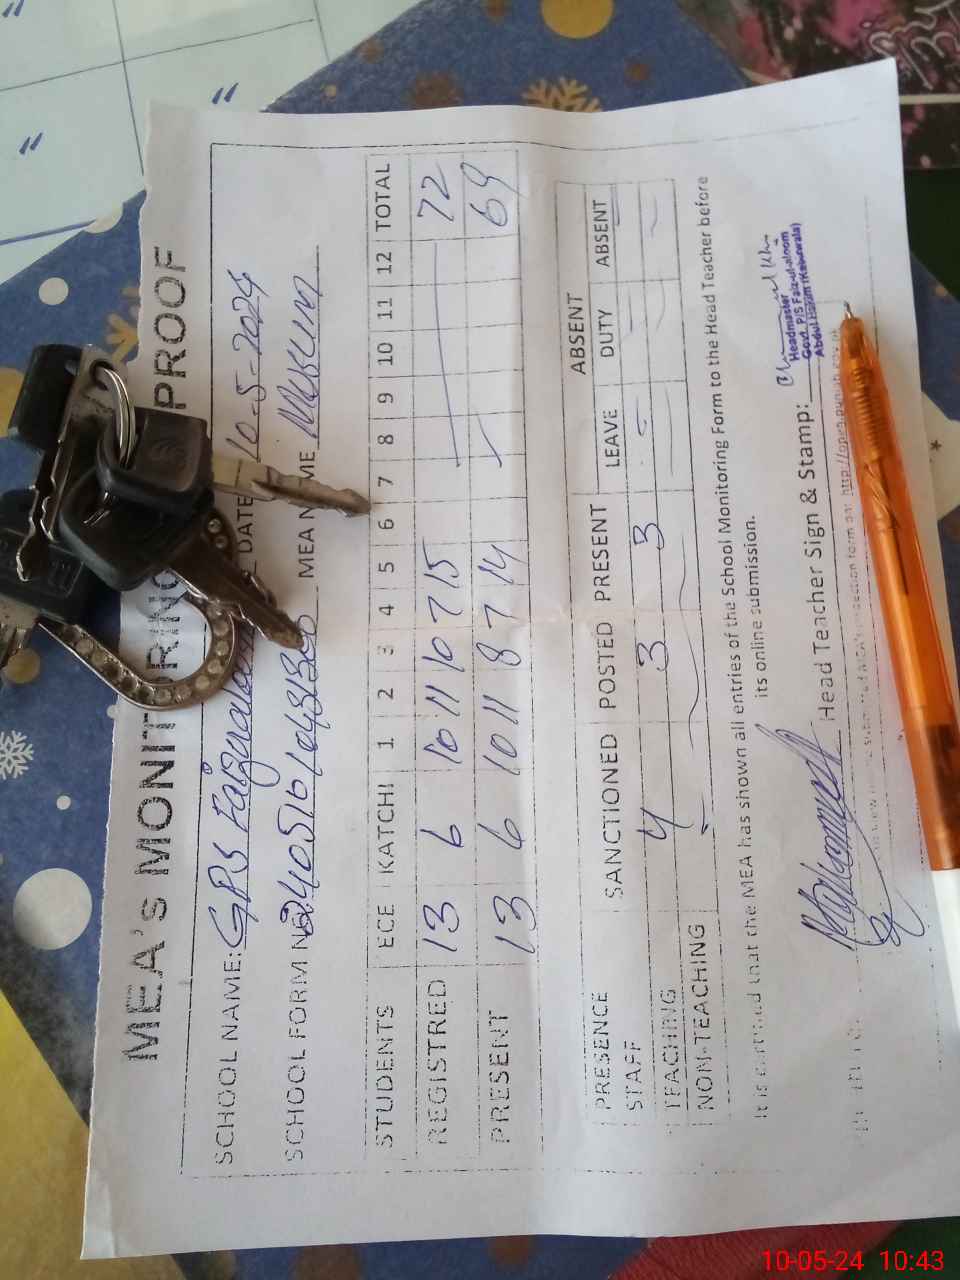 MEA's MONIT PROOF
SCHOOL NAME: GPS DATE 10-5-2024
SCHOOL FORM MEA
STUDENTS ECE KATCHI 1 2 3 4 5 6 7 8 9 10 11 12 TOTAL
REGISTRED 13 6 10 11 10 7 15 72
PRESENT 13 6 10 11 8 7 14 69
PRESENCE ABSENT
STAFF SANCTIONED POSTED PRESENT LEAVE DUTY ABSENT
TEACHING 4 3 3
NON-TEACHING
It is certified that the MEA has shown all entries of the School Monitoring Form to the Head Teacher before
its online submission.
Head Teacher Sign & Stamp:
Headmaster
Govt. P/S Faiz-ul-uloom
Abdul Hakim (Kabirwala)
10-05-24 10:43